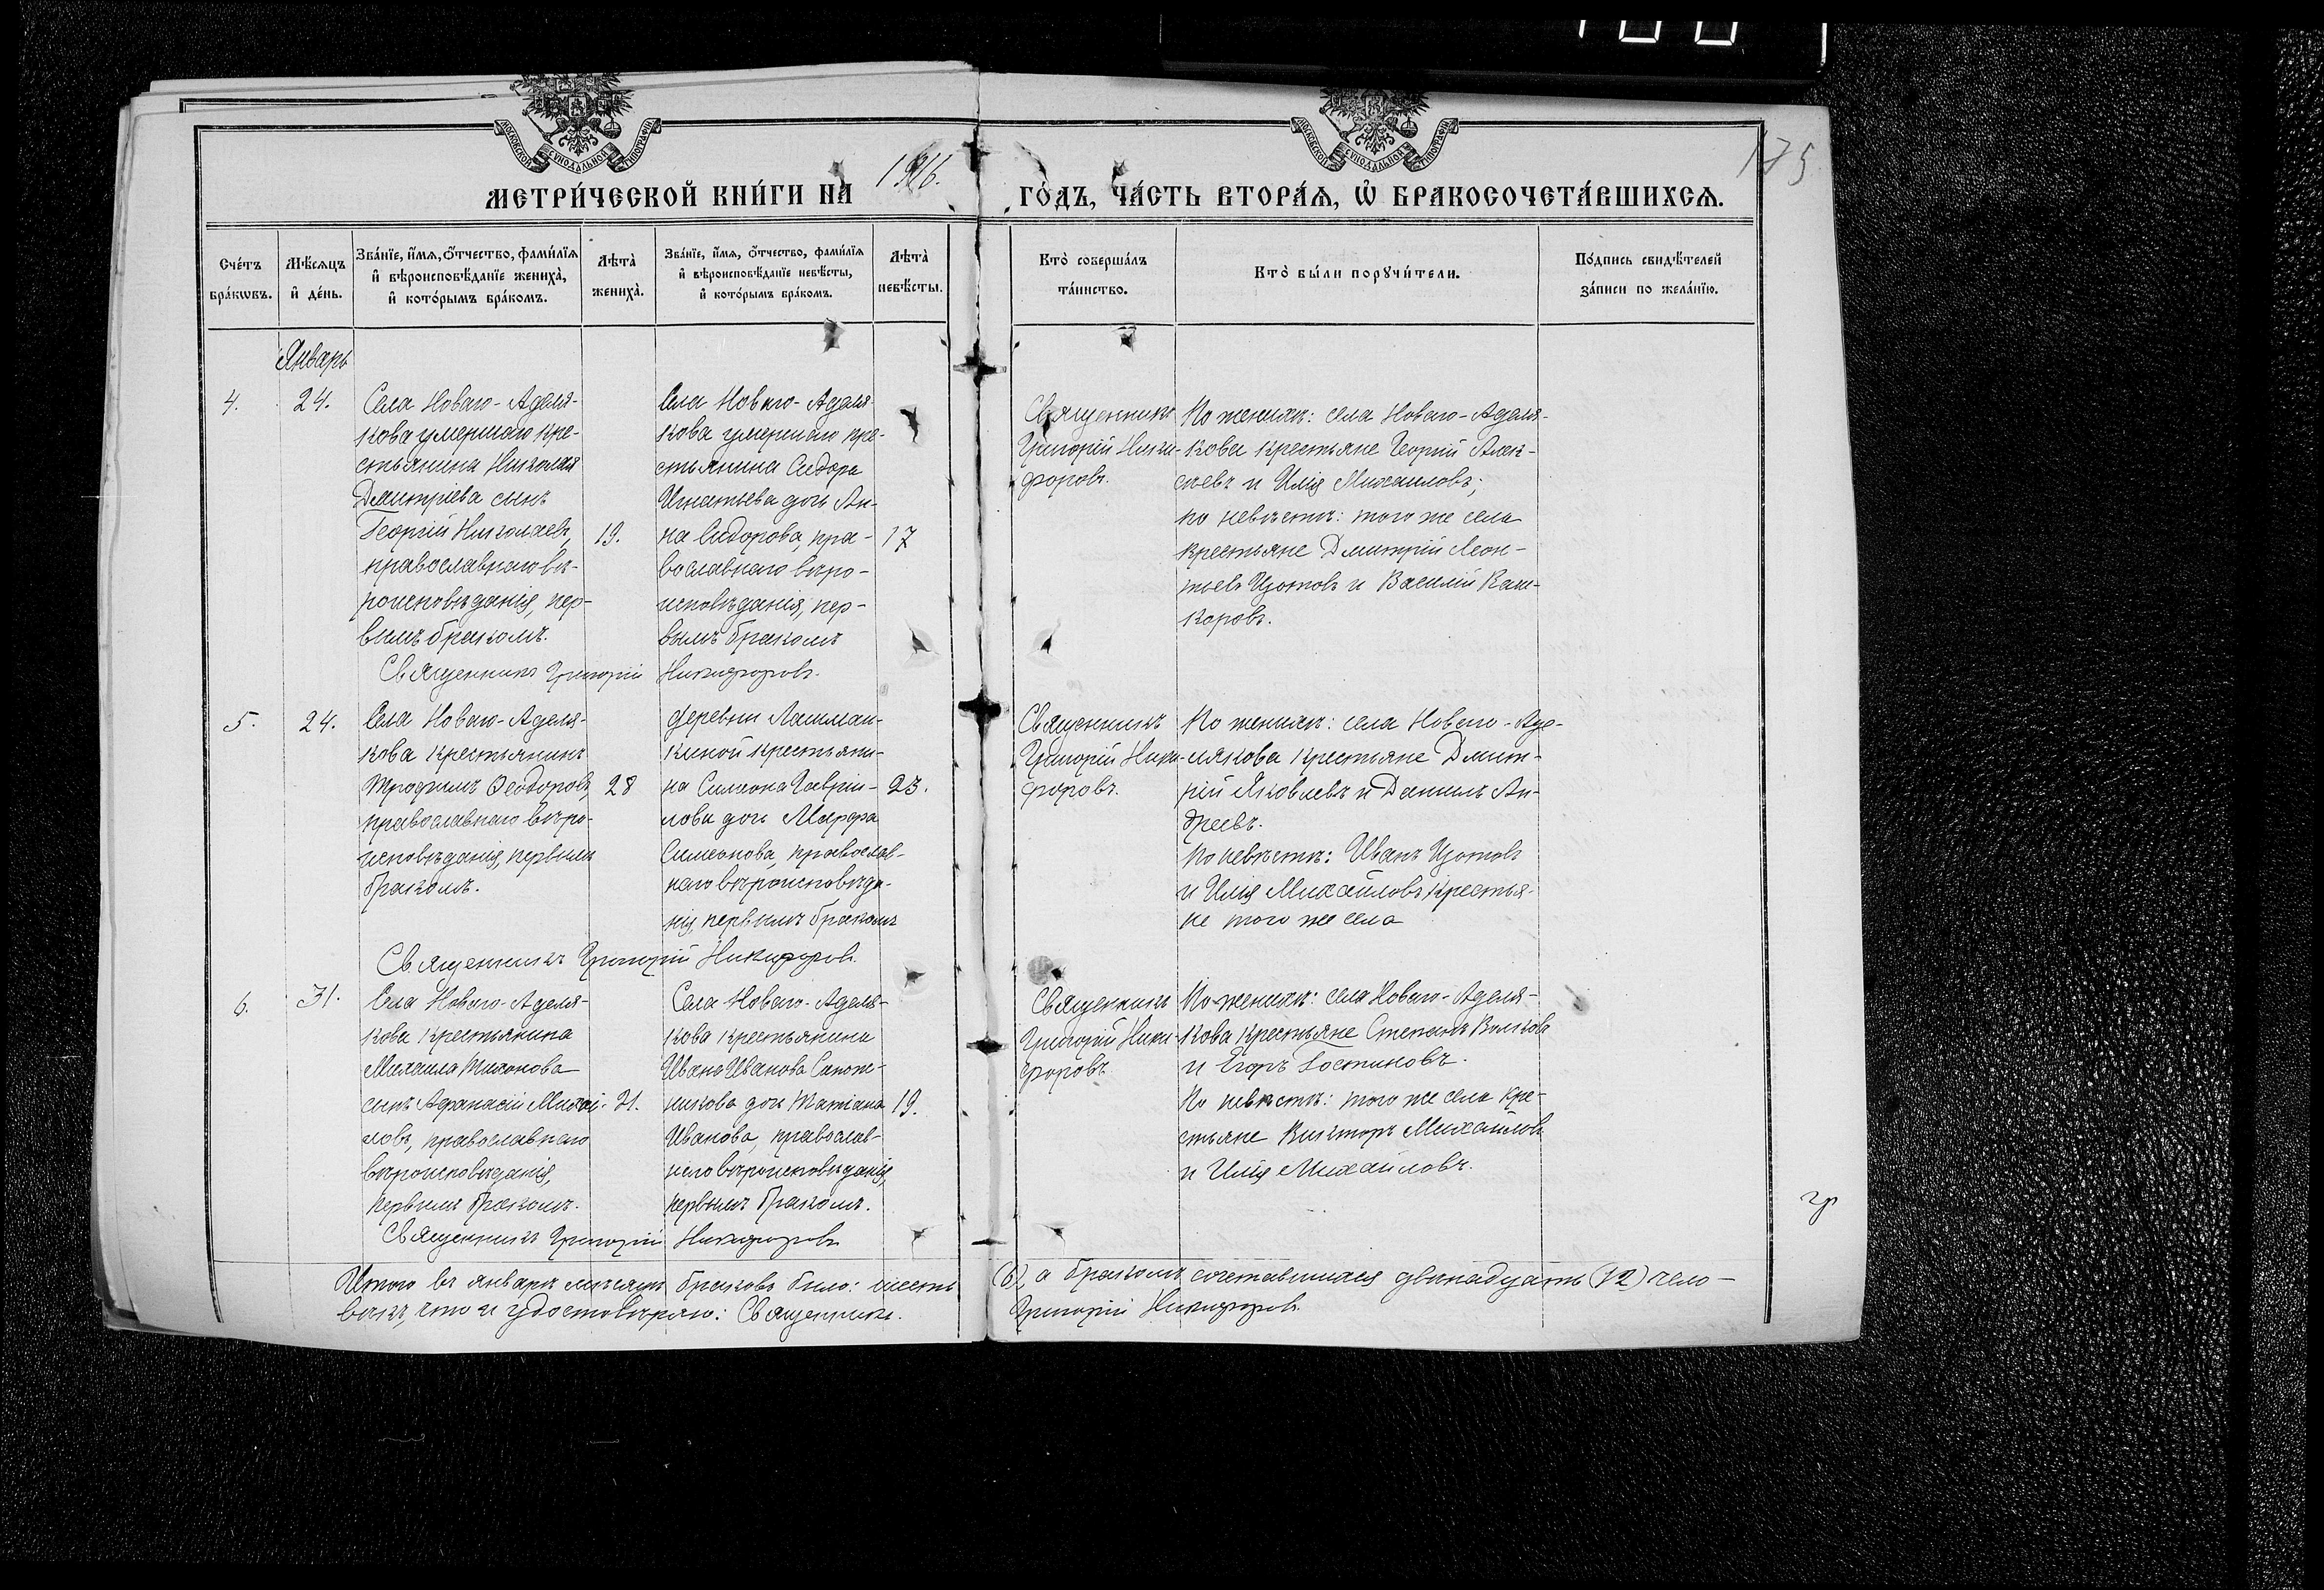 МОСКОВСКОЙ СУНОДАЛЬНОЙ ТИПОГРАФІИ
МОСКОВСКОЙ СУНОДАЛЬНОЙ ТИПОГРАФІИ
175
МЕТРИ́ЧЕСКОЙ КНИ́ГИ НА 1916. ГО́ДЪ, ЧА́СТЬ ВТОРА́Ѧ, Ѽ БРАКОСОЧЕТА́ВШИХСѦ.
Сче́тъ бра́кωвъ.
Мѣ́сяцъ и де́нь.
Зва́нїе, и́мѧ, о́тчество, фами́лїѧ и вѣроисповѣ́данїе жениха̀, и кото́рымъ бра́комъ.
Лѣта̀ жениха̀.
Зва́нїе, и́мѧ, о́тчество, фами́лїѧ и вѣроисповѣ́данїе невѣ́сты, и кото́рымъ бра́комъ.
Лѣта̀ невѣ́сты.
Кто̀ соверша́лъ та́инство.
Кто̀ бы́ли порꙋчи́тели.
По́дпись свидѣ́телей за́писи по жела́нїю.
Январь
4.
24.
Села Новаго-Аделя-
кова умершаго кре-
стьянина Николая
Дмитріева сынъ
Георгій Николаевъ,
православнаго вѣ-
роисповѣданія, пер-
вымъ бракомъ.
19.
Села Новаго-Аделя-
кова умершаго кре-
стьянина Сидора
Игнатьева дочь Ан-
на Сидорова, пра-
вославнаго вѣро-
исповѣданія, пер-
вымъ бракомъ
17
Священникъ
Григорій Ники-
форовъ.
По женихѣ: села Новаго-Аделя-
кова крестьяне Георгій Алек-
сѣевъ и Илія Михаиловъ;
по невѣстѣ: того же села
крестьяне Дмитрій Леон-
тьевъ Изотовъ и Василій Каш-
коровъ.
Священникъ Григорій Никифоровъ.
5.
24.
Села Новаго-Аделя-
кова крестьянинъ
Трофимъ Ѳеодоровъ,
православнаго вѣро-
исповѣданія, первымъ
бракомъ.
28
деревни Лашман-
киной крестьяни-
на Симеона Гаврии-
лова дочь Марфа
Симеонова, православ-
наго вѣроисповѣда-
нія, первымъ бракомъ
23.
Священникъ
Григорій Ники-
форовъ.
По женихѣ: села Новаго-Аде-
лякова крестьяне Дмит-
рій Яковлевъ и Даніилъ Ан-
дреевъ.
По невѣстѣ: Иванъ Изотовъ
и Илія Михайловъ крестья-
не того же села
Священникъ Григорій Никифоровъ.
6.
31.
Села Новаго-Аделя-
кова крестьянина
Михаила Тихонова
сынъ Афанасій Михаи-
ловъ, православнаго
вѣроисповѣданія,
первымъ бракомъ.
21.
Села Новаго-Аделя-
кова крестьянина
Ивана Иванова Сапож-
никова дочь Татіана
Иванова, православ-
наго вѣроисповѣданія,
первымъ бракомъ.
19.
Священникъ
Григорій Ники-
форовъ
По женихѣ: села Новаго-Аделя-
кова крестьяне Степанъ Волковъ
и Егоръ
По невѣстѣ: того же села кре-
стьяне Викторъ Михайловъ
и Илія Михайловъ.
Священникъ Григорій Никифоровъ
Итого въ январѣ мѣсяцѣ браковъ было: шесть (6), а бракомъ сочетавшихся двѣнадцать (12) чело-
вѣкъ, что и удостовѣряю: Священникъ Григорій Никифоровъ.